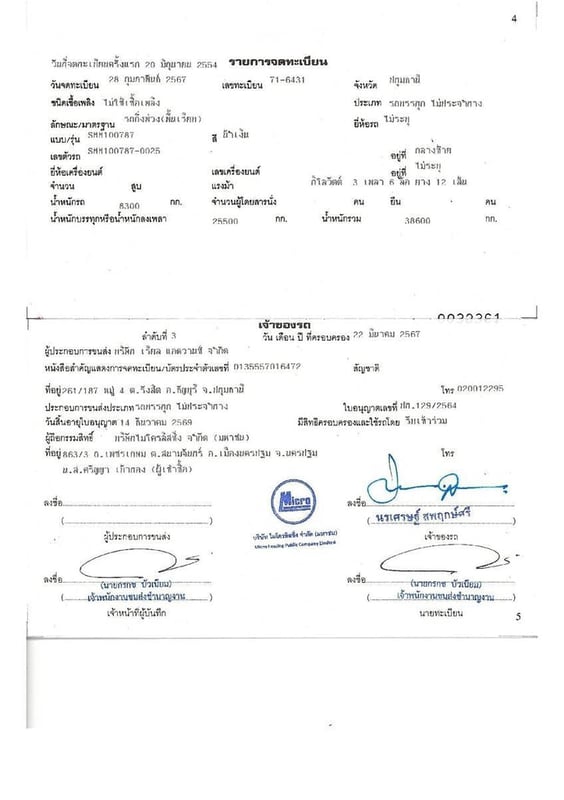 4
วันที่จดทะเบียนครั้งแรก 20 มิถุนายน 2554 รายการจดทะเบียน
วันจดทะเบียน 28 กุมภาพันธ์ 2567 เลขทะเบียน 71-6431 จังหวัด ปทุมธานี
ชนิดเชื้อเพลิง ไม่ใช้เชื้อเพลิง ประเภท รถบรรทุก ไม่ประจำทาง
ลักษณะ/มาตรฐาน รถกึ่งพ่วง(พื้นเรียบ) ยี่ห้อรถ ไม่ระบุ
แบบ/รุ่น SMM100787 สี น้ำเงิน
เลขตัวรถ SMM100787-0025 อยู่ที่ กลางซ้าย
ยี่ห้อเครื่องยนต์ เลขเครื่องยนต์ อยู่ที่ ไม่ระบุ
จำนวน สูบ แรงม้า กิโลวัตต์ 3 เพลา 6 ล้อ ยาง 12 เส้น
น้ำหนักรถ 6300 กก. จำนวนผู้โดยสารนั่ง คน ยืน คน
น้ำหนักบรรทุกหรือน้ำหนักลงเพลา 25500 กก. น้ำหนักรวม 38600 กก.
เจ้าของรถ
ลำดับที่ 3 วัน เดือน ปี ที่ครอบครอง 22 มีนาคม 2567
ผู้ประกอบการขนส่ง บริษัท เรียล แอดวานซ์ จำกัด
หนังสือสำคัญแสดงการจดทะเบียน/บัตรประจำตัวเลขที่ 0135557016472 สัญชาติ
ที่อยู่ 261/187 หมู่ 4 ต.รังสิต อ.ธัญบุรี จ.ปทุมธานี โทร 020012295
ประกอบการขนส่งประเภท รถบรรทุก ไม่ประจำทาง ใบอนุญาตเลขที่ ปท.129/2564
วันสิ้นอายุใบอนุญาต 14 ธันวาคม 2569 มีสิทธิครอบครองและใช้รถโดย วิ่งเข้าร่วม
ผู้ถือกรรมสิทธิ์ บริษัทไมโครลิสซิ่ง จำกัด (มหาชน)
ที่อยู่ 863/3 ถ.เพชรเกษม ต.สนามจันทร์ อ.เมืองนครปฐม จ.นครปฐม โทร
น.ส.ศริญญา (ผู้เช่าซื้อ)
Micro
ลงชื่อ ลงชื่อ
( ) ( นรเศรษฐ์ สพฤกษ์ศรี )
ผู้ประกอบการขนส่ง บริษัท ไมโครลิสซิ่ง จำกัด (มหาชน) เจ้าของรถ
Micro Leasing Public Company Limited
ลงชื่อ (นายกรกช บัวเนียม) ลงชื่อ (นายกรกช บัวเนียม)
( เจ้าพนักงานขนส่งชำนาญงาน ) ( เจ้าพนักงานขนส่งชำนาญงาน )
เจ้าหน้าที่ผู้บันทึก นายทะเบียน
5